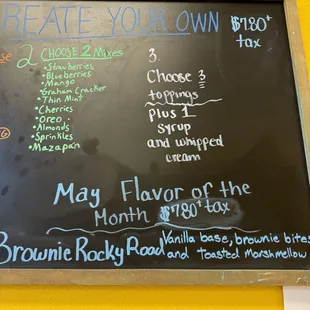 CREATE YOUR OWN $7.80+ tax
2 CHOOSE 2 Mixes
• Strawberries
• Blueberries
• Mango
• Graham Cracker
• Thin Mint
• Cherries
• Oreo
• Almonds
• Sprinkles
• Mazapán
3.
Choose 3
toppings
plus 1
syrup
and whipped
cream
May Flavor of the
Month $7.80+ tax
Brownie Rocky Road Vanilla base, brownie bites
and toasted Marshmellow